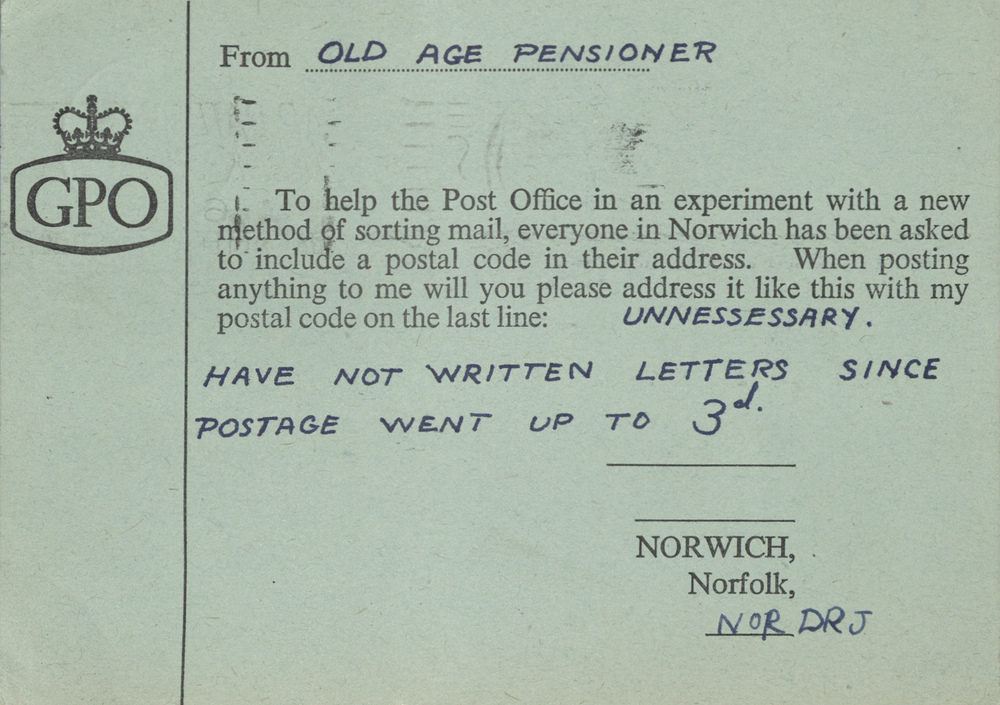 From OLD AGE PENSIONER
GPO
To help the Post Office in an experiment with a new
method of sorting mail, everyone in Norwich has been asked
to include a postal code in their address. When posting
anything to me will you please address it like this with my
postal code on the last line: UNNESSESSARY.
HAVE NOT WRITTEN LETTERS SINCE
POSTAGE WENT UP TO 3d.
NORWICH,
Norfolk,
NOR DRJ